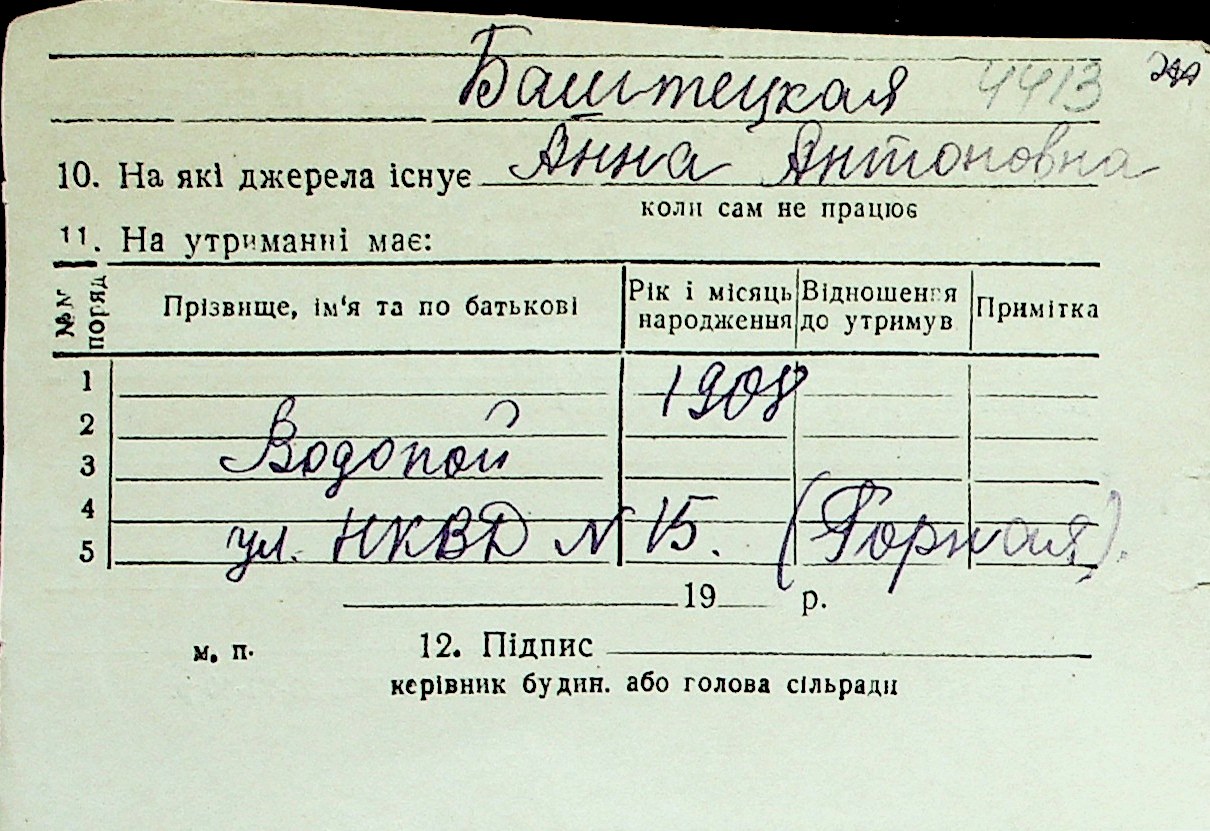 Баштецкая 4413
Анна Антоновна
10. На які джерела існує
коли сам не працює
11. На утриманні має:
№№ поряд
Прізвище, ім'я та по батькові
Рік і місяць народження
Відношення до утримув
Примітка
1 1908
2
3 Водопой
4
5 ул. НКВД N 15. (Горная).
19 р.
м. п. 12. Підпис
керівник будин. або голова сільради